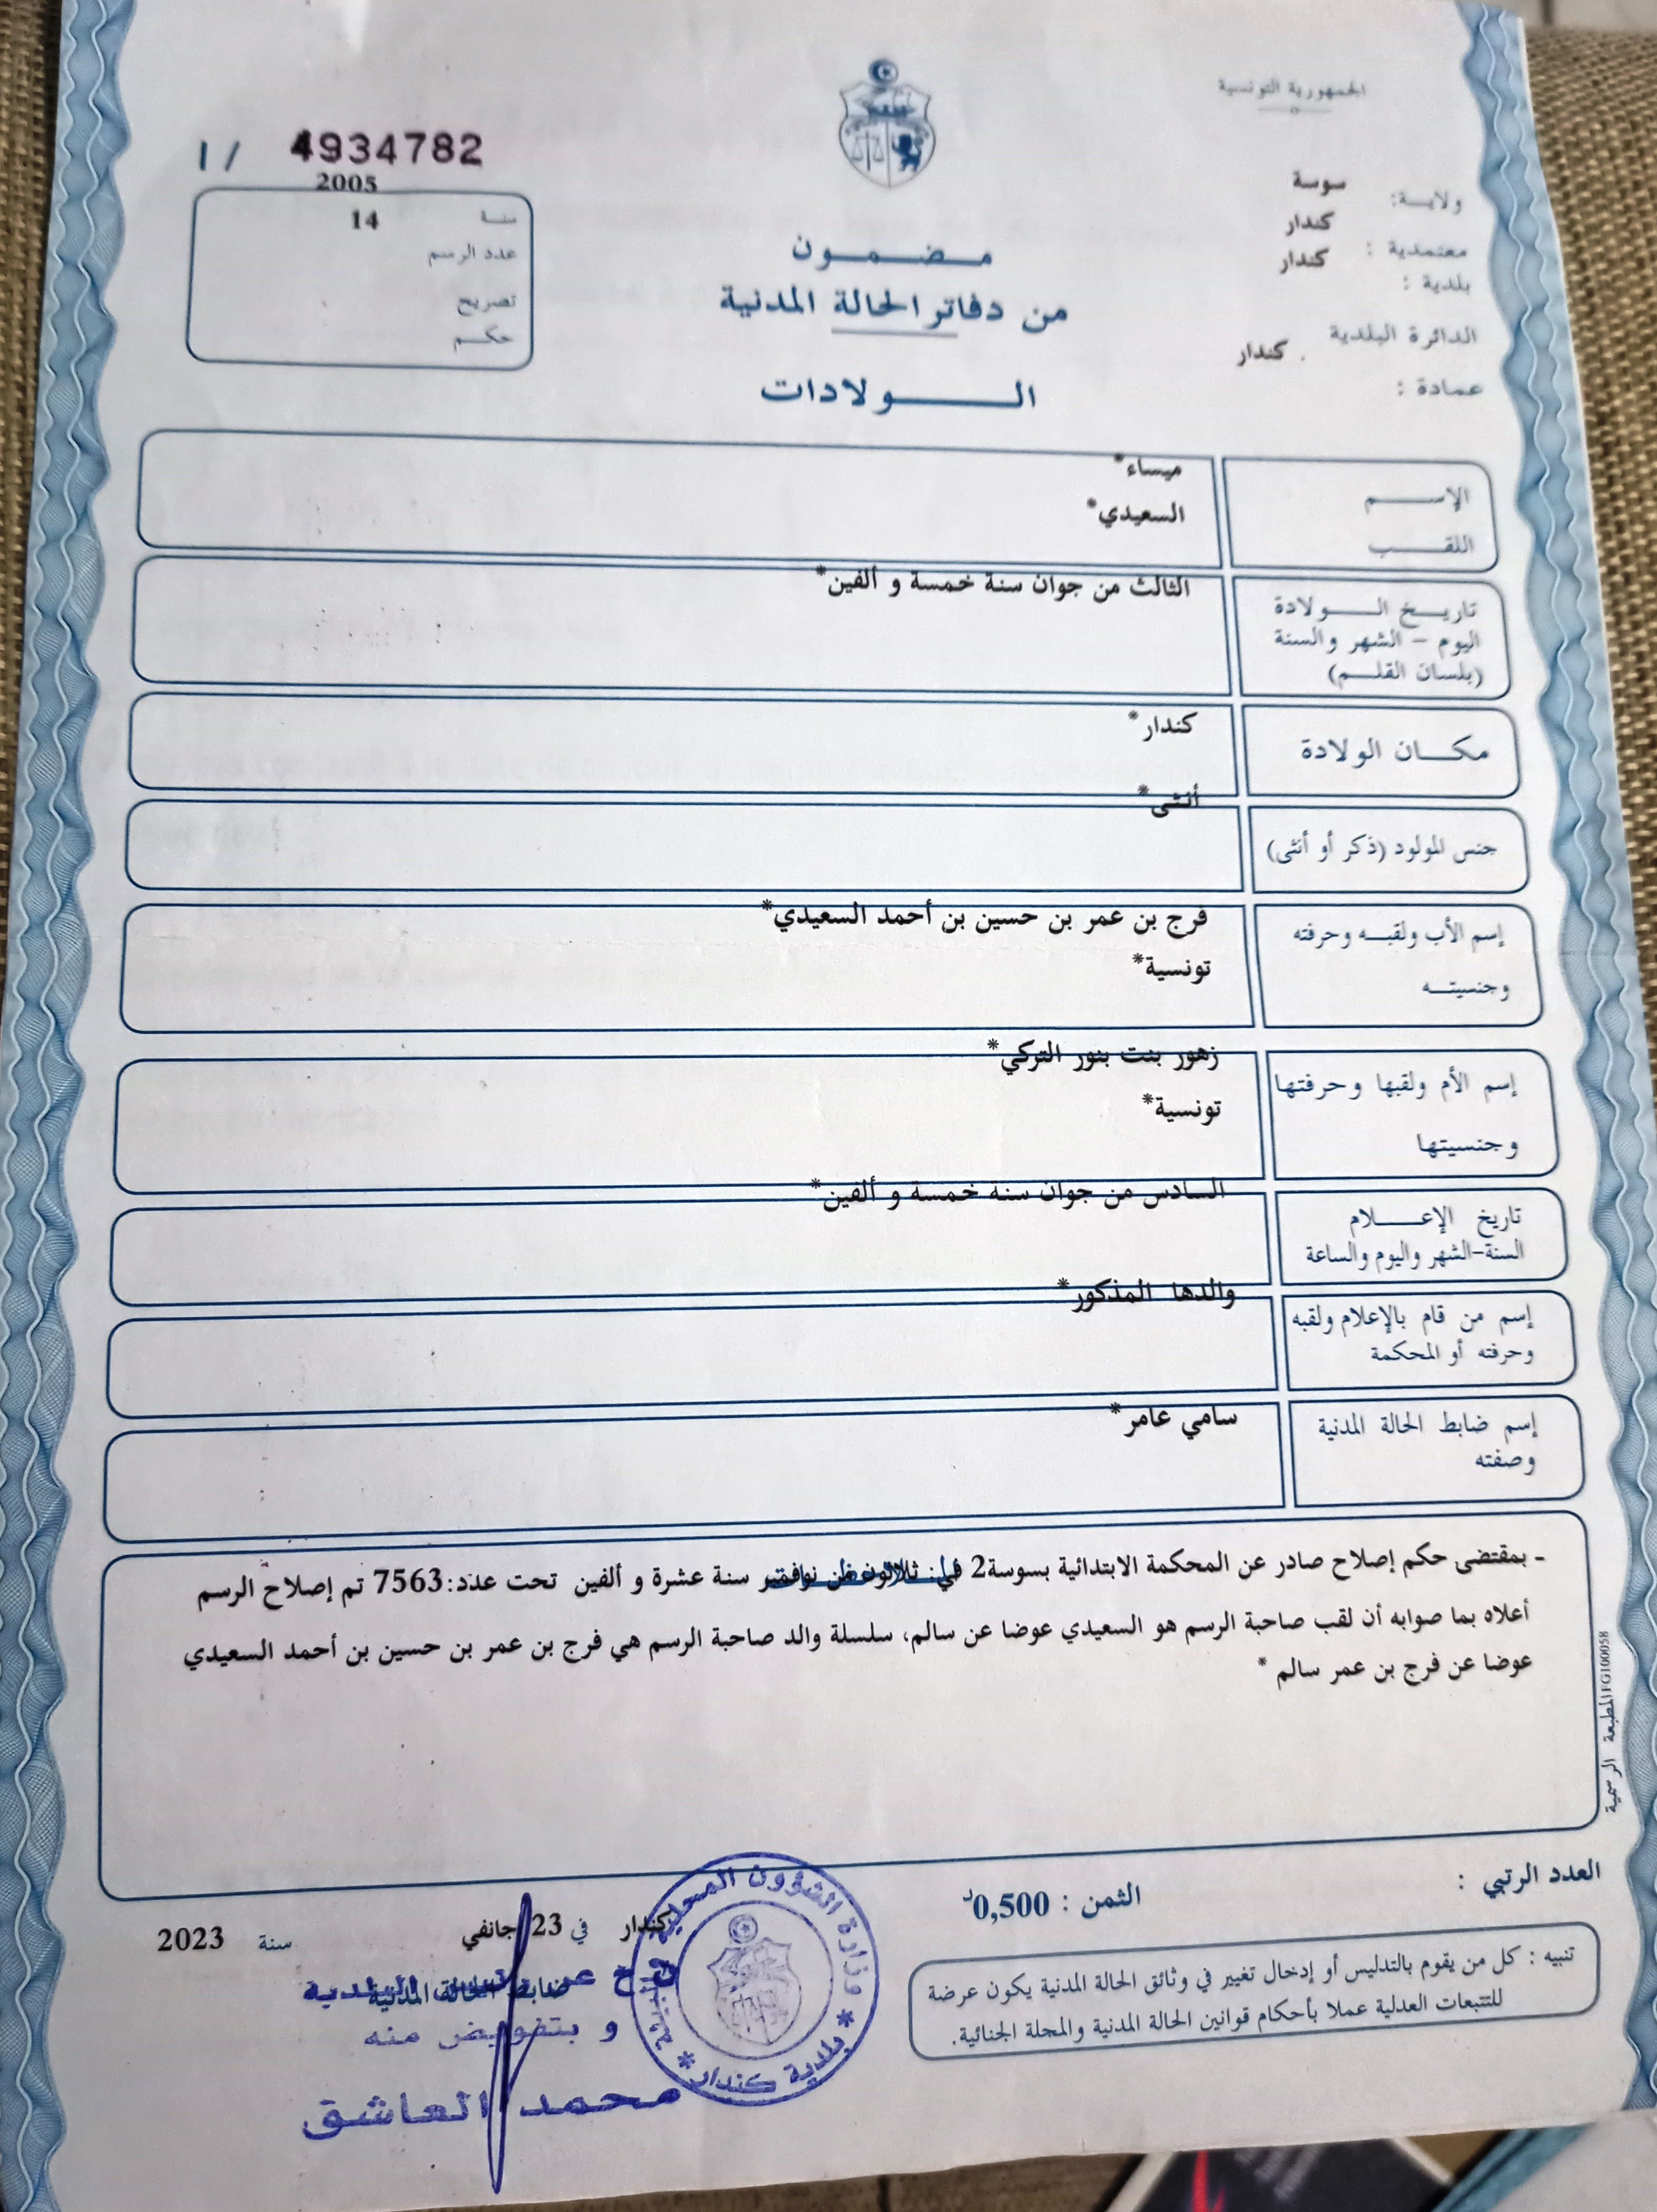 الجمهورية التونسية
ولاية: سوسة
معتمدية : كندار
بلدية : كندار
الدائرة البلدية . كندار
عمادة :
1 / 4934782
سنة 2005
عدد الرسم 14
تصريح
حكم
مضمون
من دفاتر الحالة المدنية
الولادات
الإسم ميساء*
اللقب السعيدي*
تاريخ الولادة
اليوم - الشهر والسنة
(بلسان القلم)
الثالث من جوان سنة خمسة و ألفين*
مكان الولادة كندار*
جنس المولود (ذكر أو أنثى) أنثى*
إسم الأب ولقبه وحرفته
وجنسيته
فرج بن عمر بن حسين بن أحمد السعيدي*
تونسية*
إسم الأم ولقبها وحرفتها
وجنسيتها
زهور بنت بنور التركي*
تونسية*
تاريخ الإعلام
السنة-الشهر واليوم والساعة
السادس من جوان سنة خمسة و ألفين*
إسم من قام بالإعلام ولقبه
وحرفته أو المحكمة
والدها المذكور*
إسم ضابط الحالة المدنية
وصفته
سامي عامر*
- بمقتضى حكم إصلاح صادر عن المحكمة الابتدائية بسوسة2 في: ثلاثون من نوفمبر سنة عشرة و ألفين تحت عدد:7563 تم إصلاح الرسم
أعلاه بما صوابه أن لقب صاحبة الرسم هو السعيدي عوضا عن سالم، سلسلة والد صاحبة الرسم هي فرج بن عمر بن حسين بن أحمد السعيدي
عوضا عن فرج بن عمر سالم *
المطبعة الرسمية FG100058
العدد الرتبي :
الثمن : 0,500د
تنبيه : كل من يقوم بالتدليس أو إدخال تغيير في وثائق الحالة المدنية يكون عرضة
للتتبعات العدلية عملا بأحكام قوانين الحالة المدنية والمجلة الجنائية.
كندار في 23 جانفي سنة 2023
ضابط الحالة المدنية
و بتفويض منه
محمد العاشق
وزارة الشؤون المحلية
* بلدية كندار *